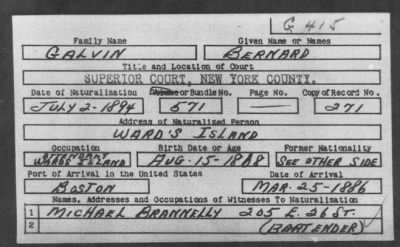 G 415
Family Name Given Name or Names
GALVIN BERNARD
Title and Location of Court
SUPERIOR COURT, NEW YORK COUNTY.
Date of Naturalization Volume or Bundle No. Page No. Copy of Record No.
JULY 2-1894 571 — 271
Address of Naturalized Person
WARD'S ISLAND
Occupation Birth Date or Age Former Nationality
WARDS ISLAND AUG. 15-1868 SEE OTHER SIDE
Port of Arrival in the United States Date of Arrival
BOSTON MAR-25-1886
Names, Addresses and Occupations of Witnesses To Naturalization
1 MICHAEL BRANNELLY 205 E. 26 ST.
2 (BARTENDER)